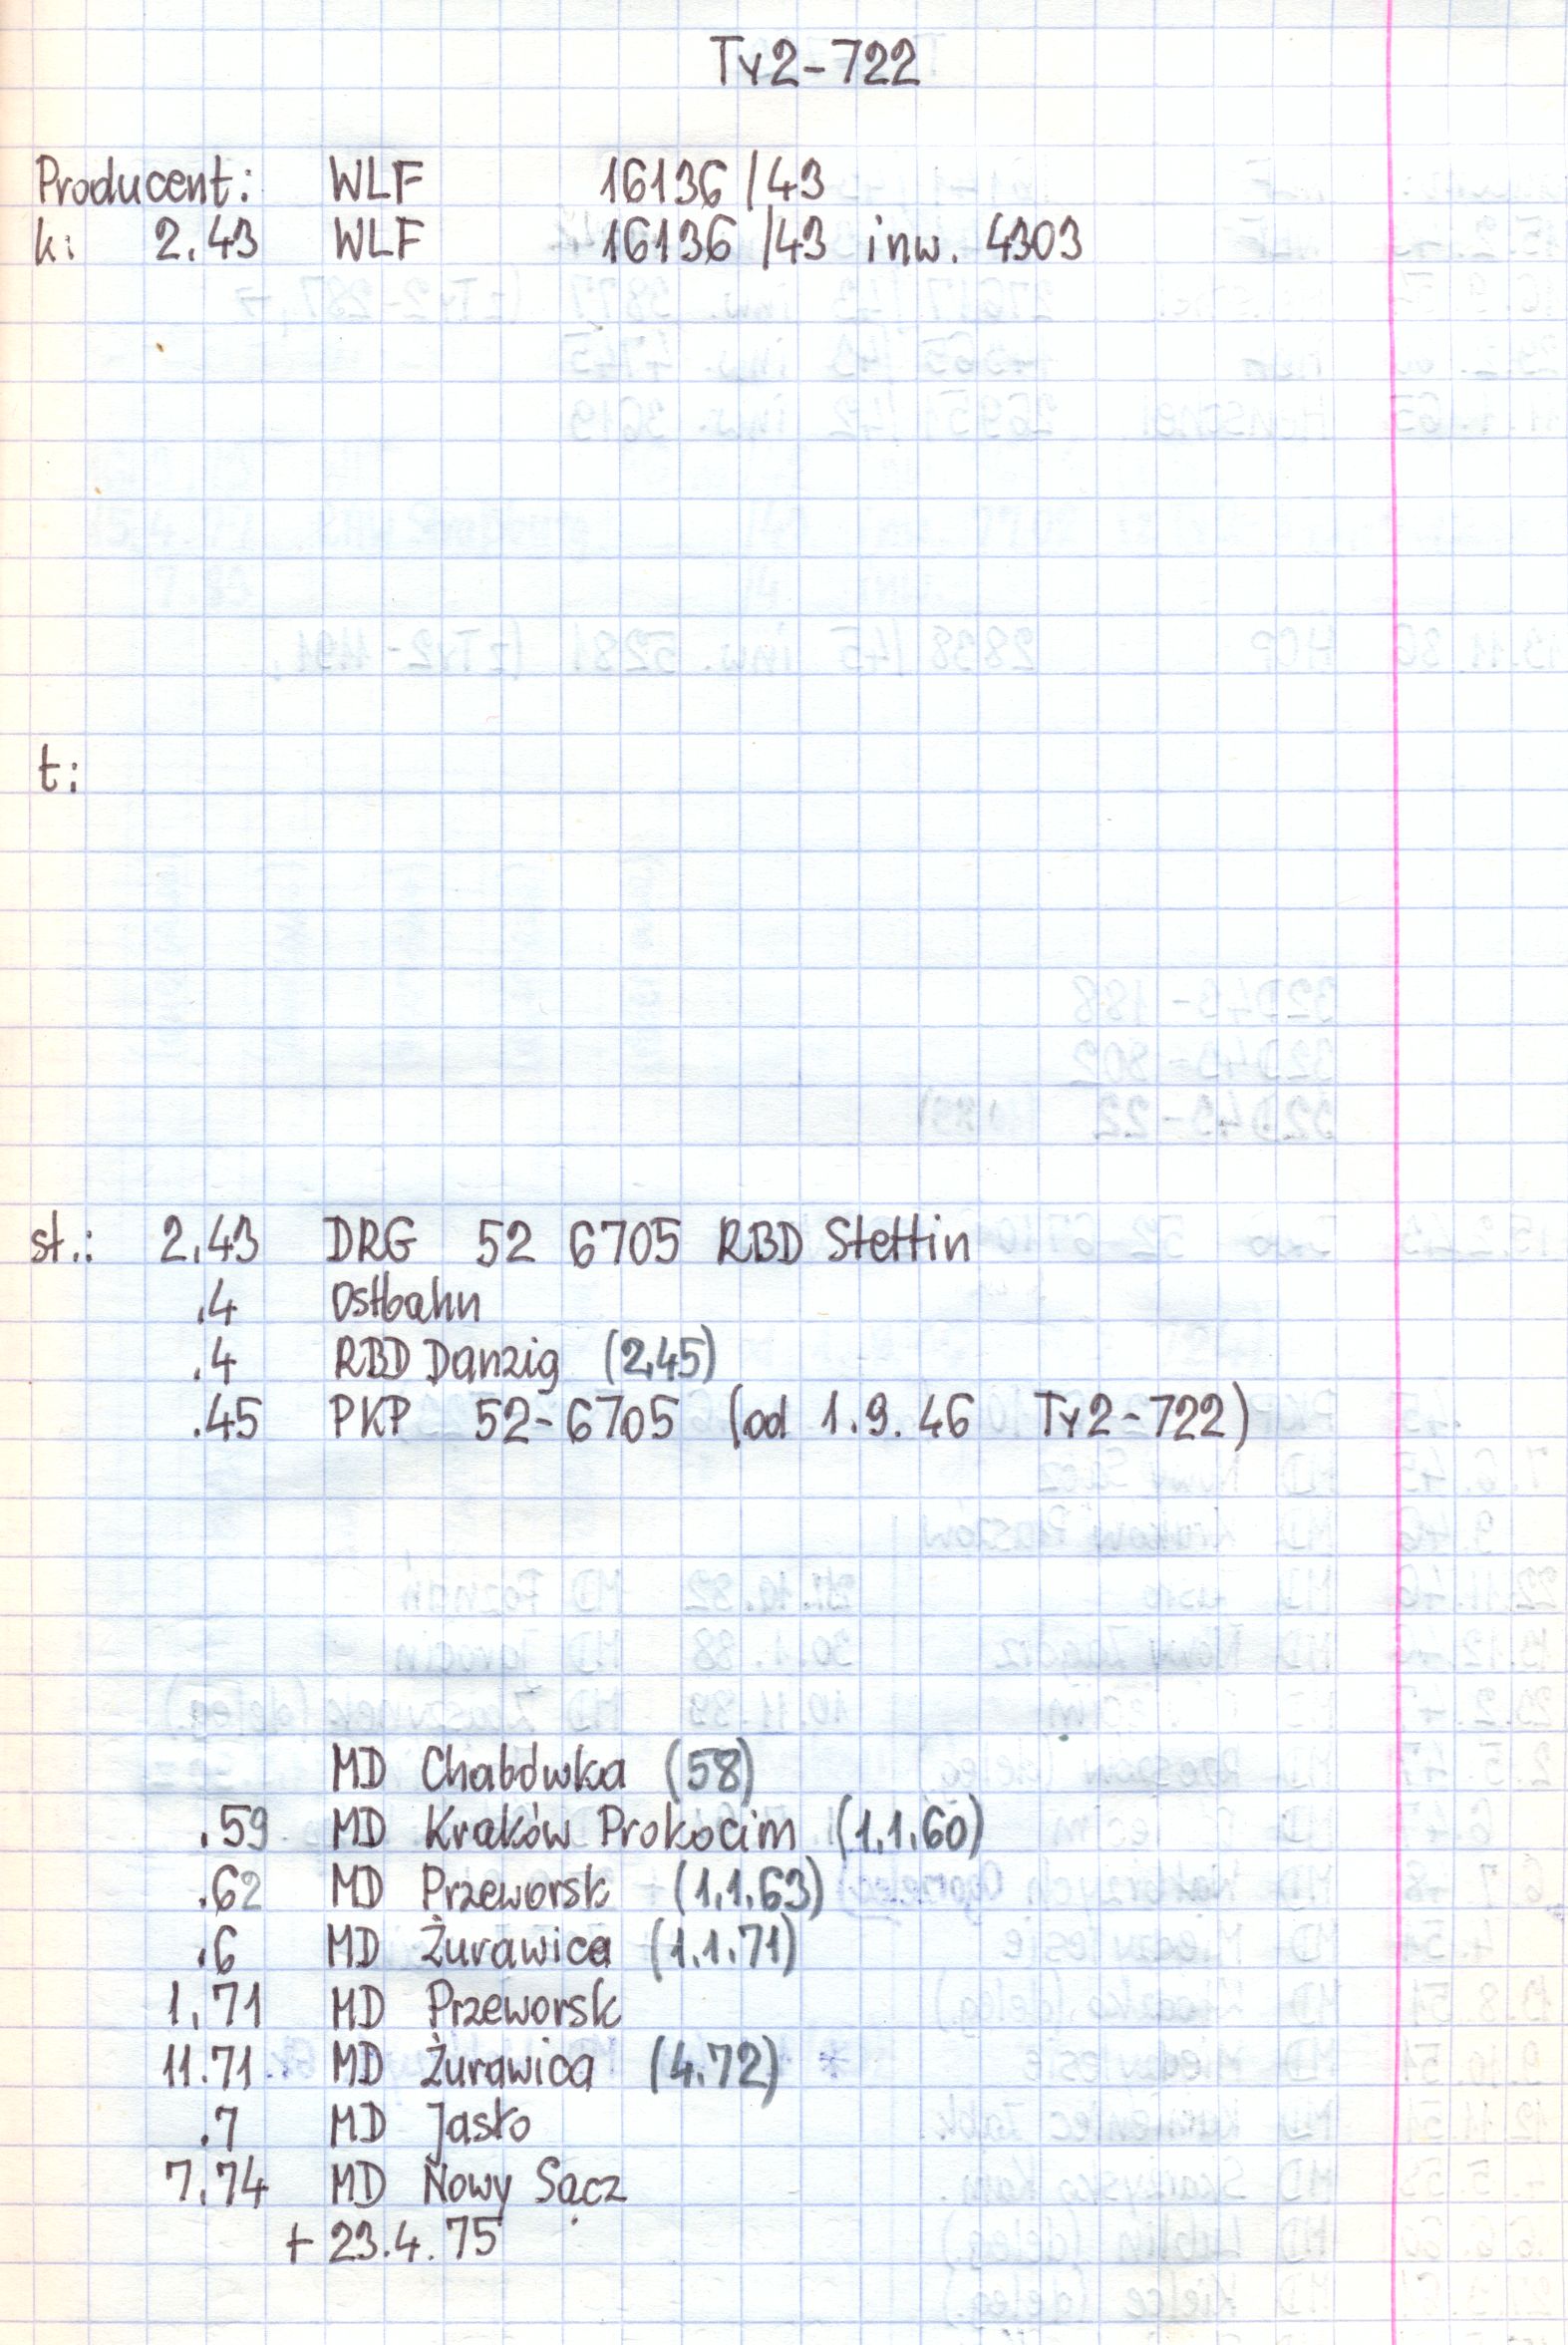 Ty2-722
Producent: WLF 16136/43
k: 2.43 WLF 16136/43 inw. 4303
t:
st.: 2.43 DRG 52 6705 RBD Stettin
.4 Ostbahn
.4 RBD Danzig (2.45)
.45 PKP 52-6705 (od 1.9.46 Ty2-722)
MD Chabówka (58)
.59 MD Kraków Prokocim (1.1.60)
.62 MD Przeworsk (1.1.63)
.6 MD Żurawica (1.1.71)
1.71 MD Przeworsk
11.71 MD Żurawica (4.72)
.7 MD Jasło
7.74 MD Nowy Sącz
+ 23.4.75